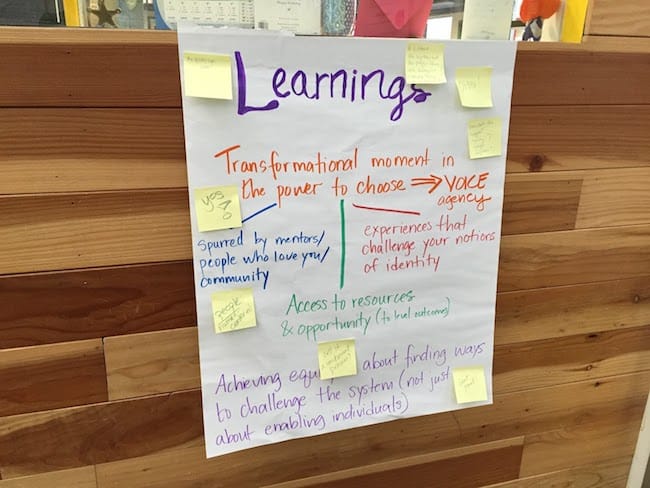 Learnings
Transformational moment in
the power to choose ⇒ VOICE
agency
yes!
Spurred by mentors/
people who love you/
community
experiences that
challenge your notions
of identity
Access to resources
& opportunity (to level outcome)
Achieving about finding ways
to challenge the system (not just
about enabling individuals)